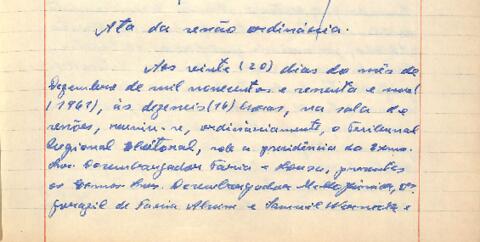 Ata da sessão ordinária.
Aos vinte (20) dias do mês de
Dezembro de mil novecentos e sessenta e um
(1961), às dezesseis (16) horas, na sala de
sessões, reuniu-se, ordinàriamente, o Tribunal
Regional Eleitoral, sob a presidência do Exmo.
Snr. Desembargador Faria e Sousa, presentes
os Exmos. Snrs. Desembargador
de Faria Alvim e Samuel Werneck e